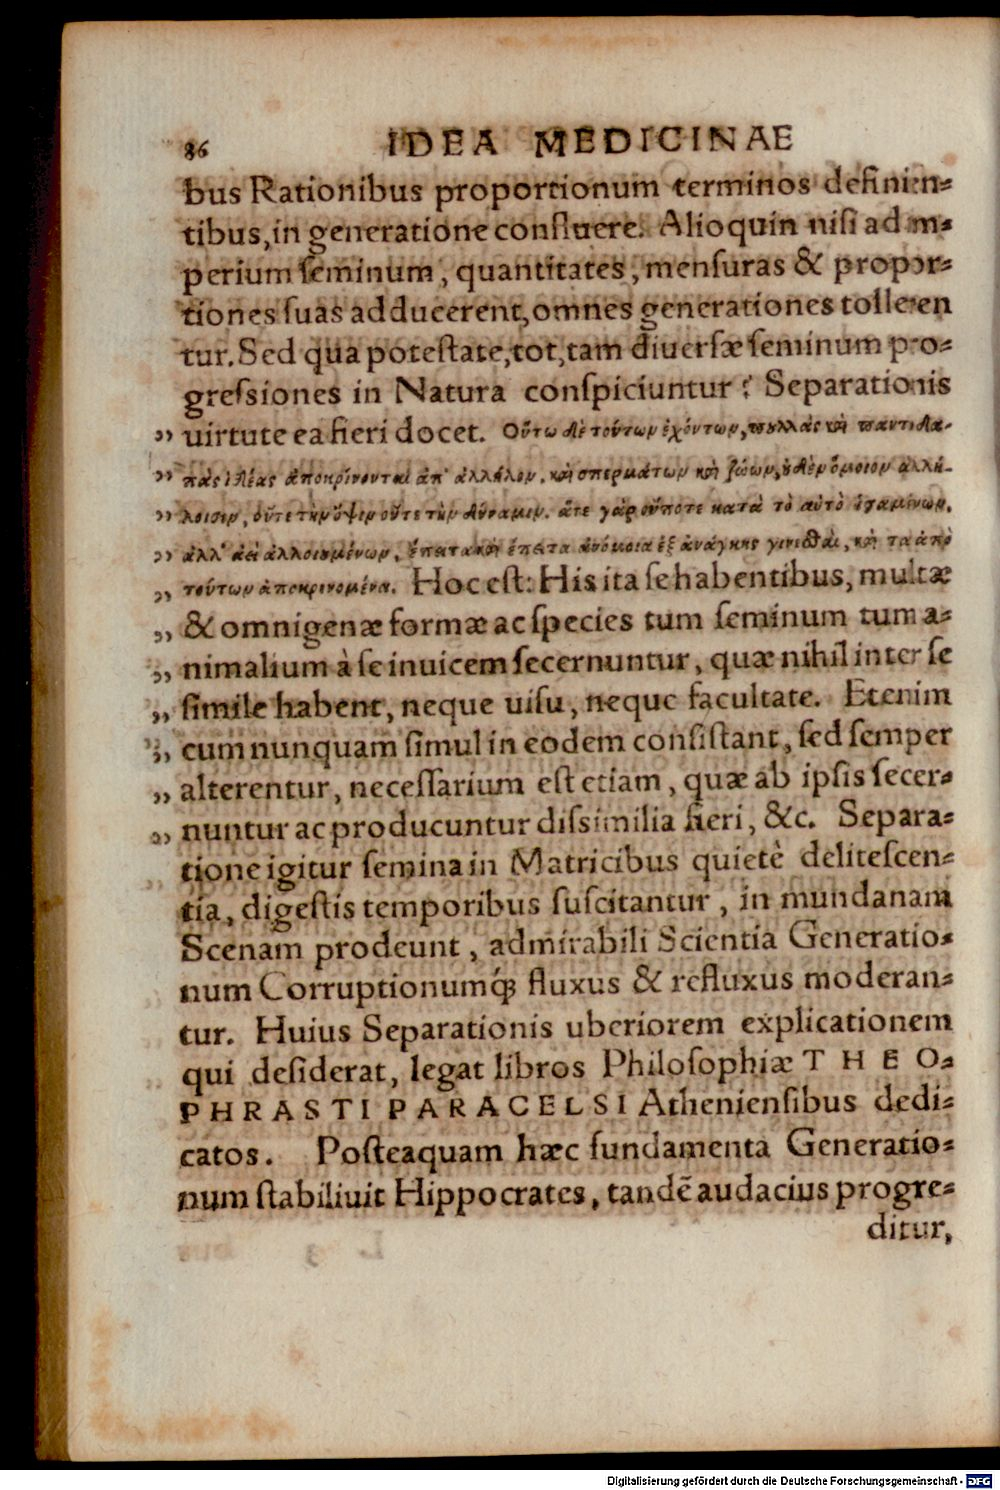 86 IDEA MEDICINAE
bus Rationibus proportionum terminos definien-
tibus, in generatione confluere. Alioquin nisi ad im-
perium seminum, quantitates, mensuras & propor-
tiones suas adducerent, omnes generationes tolleren
tur. Sed qua potestate, tot, tam diuersæ seminum pro-
gressiones in Natura conspiciuntur? Separationis
„ uirtute ea fieri docet. Οὕτω δὲ τούτων ἐχόντων, πολλάς καὶ παντοδα-
„ πὰς ἰδέας ἀποκρίνονται ἀπ' ἀλλήλον, καὶ σπερμάτων καὶ ζώων, οὐδὲν ὅμοιον ἀλλή-
„ λοισιν, οὔτε τὴν ὄψιν οὔτε τὴν δύναμιν. ἅτε γὰρ οὔποτε κατὰ τὸ αὐτὸ ἱσταμένων,
„ ἀλλ' ἀεὶ ἀλλοιουμένων, ἔπειτα καὶ ἔπειτα ἀνόμοια ἐξ ἀνάγκης γίνεσθαι, καὶ τὰ ἀπὸ
„ τούτων ἀποκρινομένα. Hoc est: His ita se habentibus, multæ
„ & omnigenæ formæ ac species tum seminum tum a-
„ nimalium à se inuicem secernuntur, quæ nihil inter se
„ simile habent, neque uisu, neque facultate. Etenim
„ cum nunquam simul in eodem consistant, sed semper
„ alterentur, necessarium est etiam, quæ ab ipsis secer-
„ nuntur ac producuntur dissimilia fieri, &c. Separa-
tione igitur semina in Matricibus quietè delitescen-
tia, digestis temporibus suscitantur, in mundanam
Scenam prodeunt, admirabili Scientia Generatio-
num Corruptionumq́; fluxus & refluxus moderan-
tur. Huius Separationis uberiorem explicationem
qui desiderat, legat libros Philosophiæ THEO-
PHRASTI PARACELSI Atheniensibus dedi-
catos. Posteaquam hæc fundamenta Generatio-
num stabiliuit Hippocrates, tandē audacius progre-
ditur,
Digitalisierung gefördert durch die Deutsche Forschungsgemeinschaft - DFG